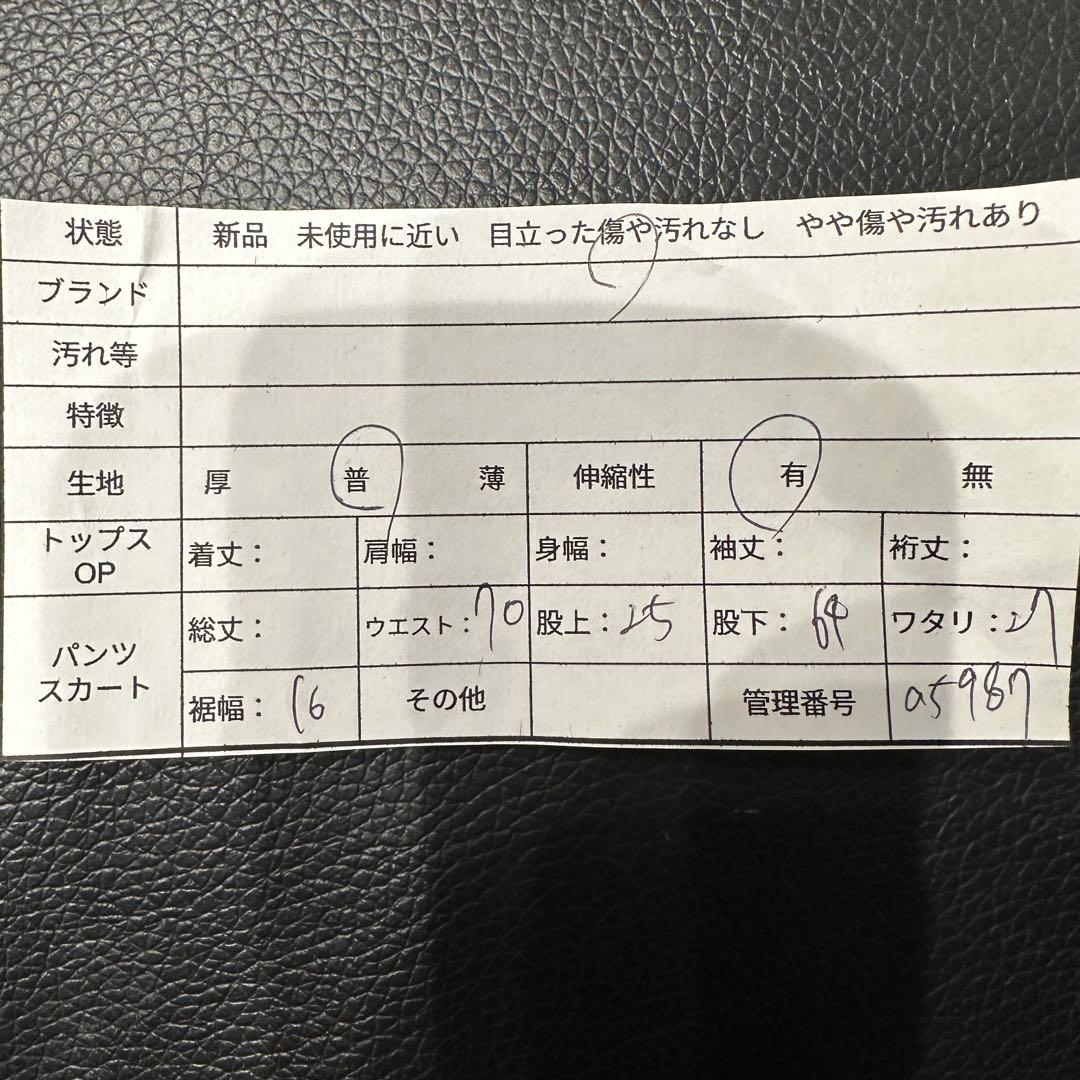 状態 新品 未使用に近い 目立った傷や汚れなし やや傷や汚れあり
ブランド
汚れ等
特徴
生地 厚 普 薄 伸縮性 有 無
トップス
OP
着丈： 肩幅： 身幅： 袖丈： 裄丈：
パンツ
スカート
総丈： ウエスト：70 股上：25 股下：64 ワタリ：27
裾幅：16 その他 管理番号 a5987